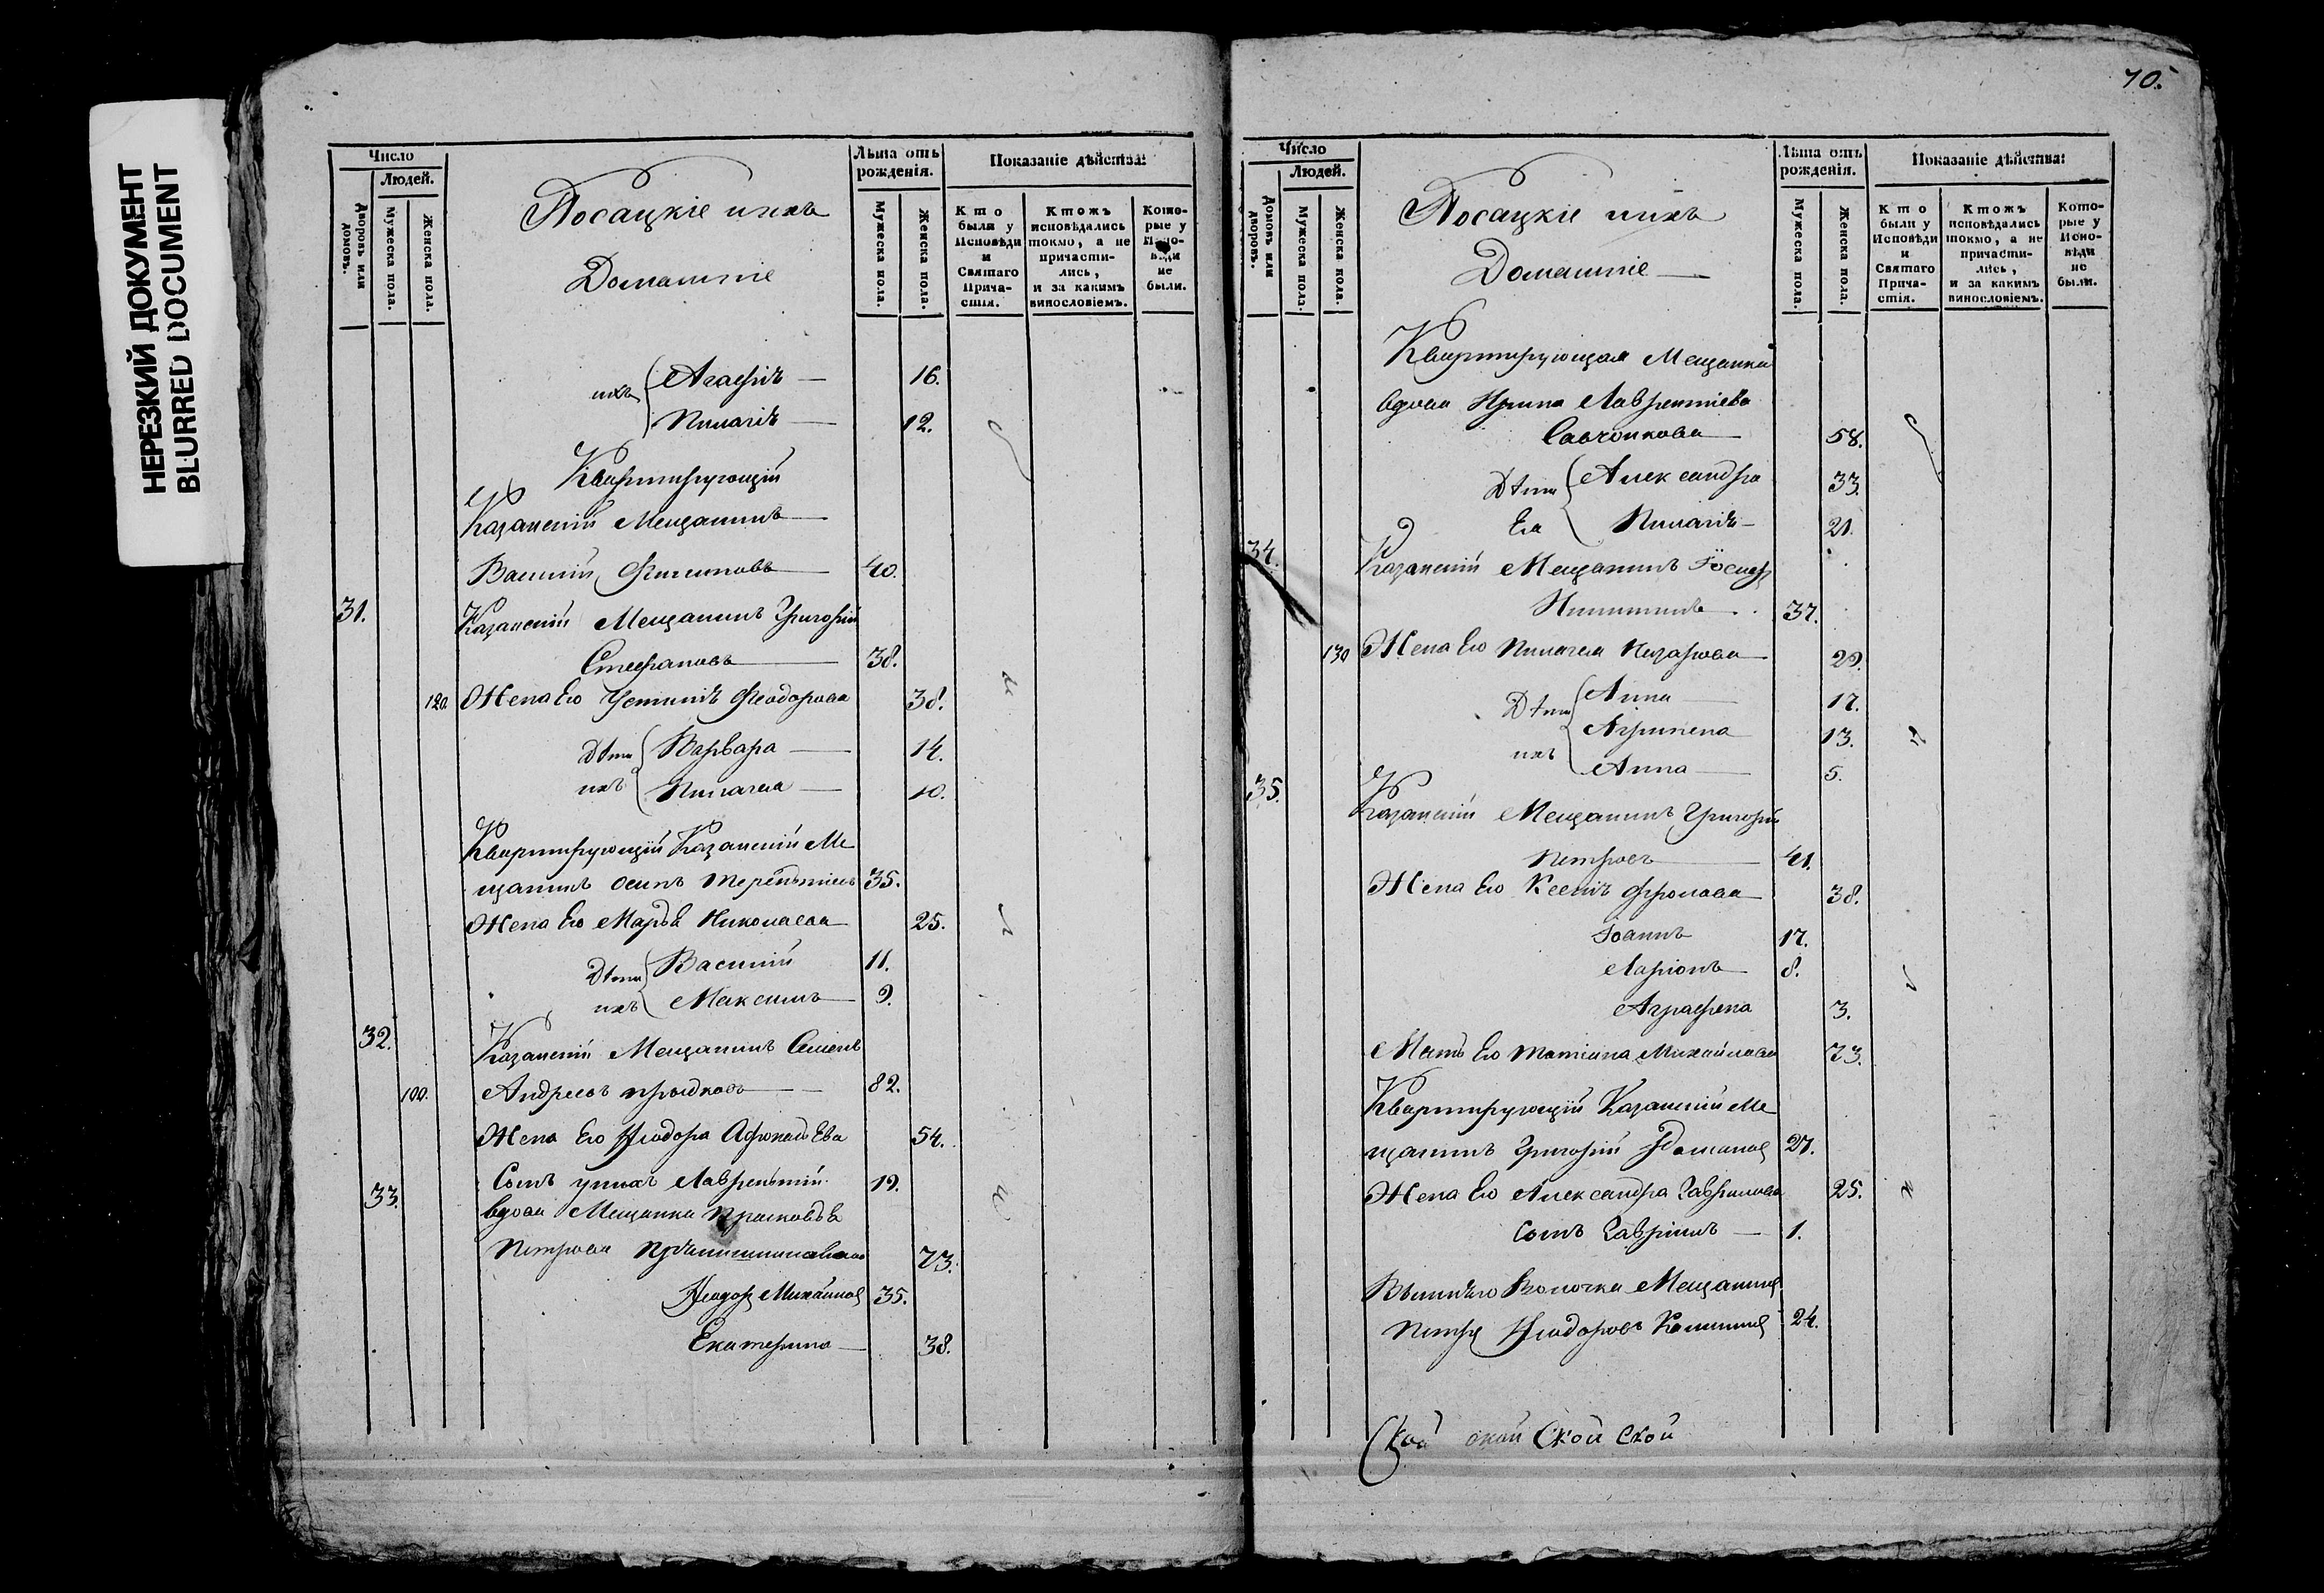 НЕРЕЗКИЙ ДОКУМЕНТ
BLURRED DOCUMENT
Число
Людей.
Дворовъ или домовъ.
Мужеска пола.
Женска пола.
Посацкіе ихъ
Домашніе
Лѣта отъ рожденія.
Мужеска пола.
Женска пола.
Показаніе дѣйства:
Кто были у Исповѣди и Святаго Прича-стія.
Ктожъ исповѣдались токмо, а не причасти-лись, и за какимъ винословіемъ.
Кото-рые у Испо-вѣди не были.
ихъ Агафія 16.
Пилагія 12.
Квартирующій
Казанскій Мещанинъ
Василий Филиповъ 40.
31. Казанскій Мещанинъ Григорій
Стефановъ 38.
120. Жена Его Устинія Феодорова 38.
Дѣти Варвара 14.
ихъ Пилагея 10.
Квартирующій Казанскій Ме
щанинъ Осипъ Терентьевъ 35.
Жена Его Марѳа Николаева 25.
Дѣти Василій 11.
ихъ Максимъ 9.
32. Казанскій Мещанинъ Семенъ
100. Андреевъ 82.
Жена Его Ѳеодора 54.
Сынъ у нихъ Лаврентій 19.
33. вдова Мещанка Прасковья
Петрова 73.
Ѳеодоръ Михайловъ 35.
Екатерина 38.
70.
Число
Людей.
Домовъ или дворовъ.
Мужеска пола.
Женска пола.
Посацкіе ихъ
Домашніе
Лѣта отъ рожденія.
Мужеска пола.
Женска пола.
Показаніе дѣйства:
Кто были у Исповѣди и Святаго Прича-стія.
Ктожъ исповѣдались токмо, а не причасти-лись, и за какимъ винословіемъ.
Кото-рые у Испо-вѣди не были.
Квартирующая Мещанка
вдова Ирина Лаврентіева
Савчонкова 58.
Дѣти Александра 33.
Ея Пилагія 21.
34. Казанскій Мещанинъ
Никитинъ 37.
130 Жена Его Пилагея Назарова 29.
Дѣти Анна 17.
Агрипена 13.
ихъ Анна 5.
35. Казанскій Мещанинъ Григорій
Петровъ 41.
Жена Его Ксенія Фролова 38.
Іоаннъ 17.
Ларіонъ 8.
Аграфена 3.
Мать Его Татіана Михайлова 73.
Квартирующій Казанскій Ме
щанинъ Григорій 27.
Жена Его Александра Гаврилова 25.
Сынъ Гавріилъ 1.
Вышняго Волочка Мещанинъ
Петръ Ѳеодоровъ 24.
Ской ской Ской Ской